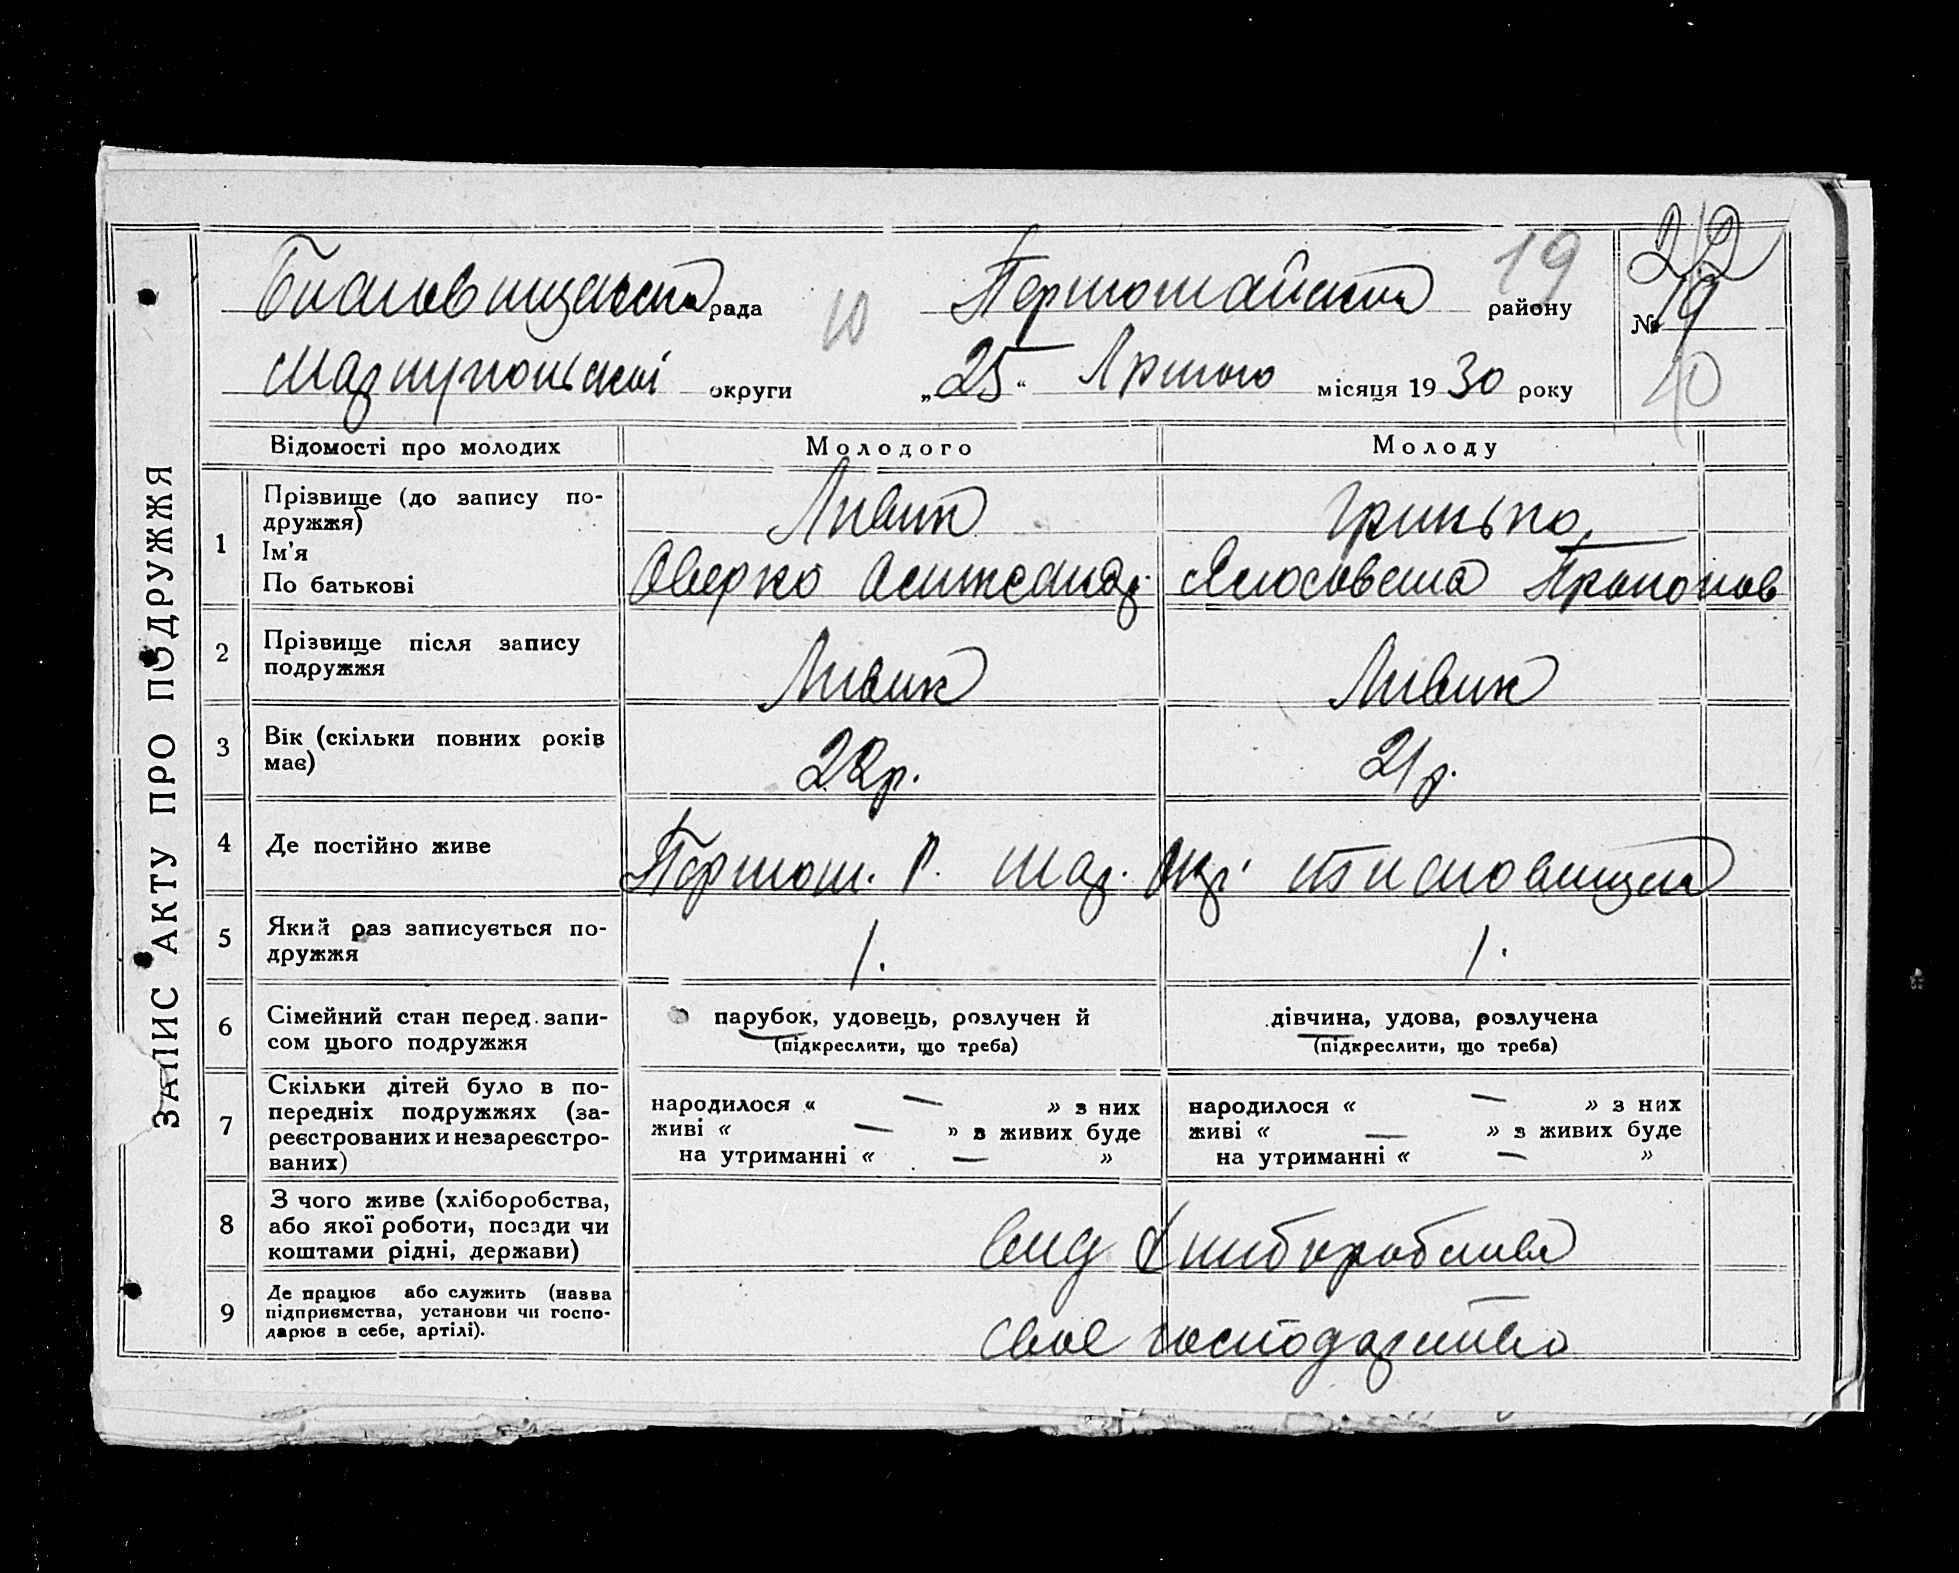 ЗАПИС АКТУ ПРО ПОДРУЖЖЯ
рада
10
Первомайськи району
19
212
№ 19
Маріупольскої округи
„25“ Лютого місяця 1930 року
10
Відомості про молодих
Молодого
Молоду
1
Прізвище (до запису по-
дружжя)
Ім’я
По батькові
Ливик
Оверко Олександ.
Гринько
Прокопов
2
Прізвище після запису
подружжя
Ливик
Ливик
3
Вік (скільки повних років
має)
22р.
21р.
4
Де постійно живе
Першом. Р. Мар. Окр.
5
Який раз записується по-
дружжя
1.
1.
6
Сімейний стан перед запи-
сом цього подружжя
парубок, удовець, розлучен й
(підкреслити, що треба)
дівчина, удова, розлучена
(підкреслити, що треба)
7
Скільки дітей було в по-
передніх подружжях (за-
реєстрованих и незареєстро-
ваних)
народилося « — » з них
живі « — » з живих буде
на утриманні « — »
народилося « — » з них
живі « — » з живих буде
на утриманні « — »
8
З чого живе (хліборобства,
або якої роботи, посади чи
коштами рідні, держави)
вид хлиборобства
9
Де працює або служить (назва
підприємства, установи чи госпо-
дарює в себе, артілі).
своє господарство